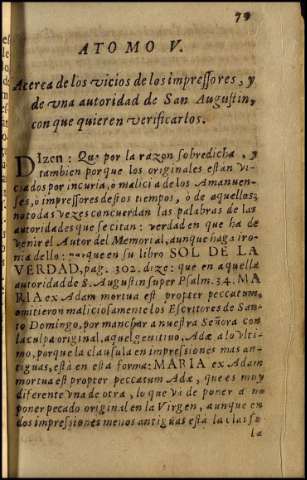 79
ATOMO V.
Acerca de los vicios de los impressores, y
de vna autoridad de San Augustin,
con que quieren verificarlos.
DIzen: Que por la razon sobredicha, y
tambien porque los originales estan vi-
ciados por incuria, o malicia de los Amanuen-
ses, o impressores destos tiempos, ò de aquellos,
no todas vezes concuerdan las palabras de las
autoridades que se citan: verdad en que ha de
venir el Autor del Memorial, aunque haga iro-
nia della: porque en su libro SOL DE LA
VERDAD, pag. 302. dize: que en aquella
autoridad de S. Augustin super Psalm. 34. MA
RIA ex Adam mortua est propter peccatum,
omitieron maliciosamente los Escritores de San-
to Domingo, por manchar a nuestra Señora con
la culpa original, aquel genitiuo, Adæ a lo vlti-
mo, porque la clausula en impressiones mas an-
tiguas, està en esta forma: MARIA ex Adam
mortua est propter peccatum Adæ, que es muy
diferente vna de otra, lo que và de poner a no
poner pecado original en la Virgen, aunque en
dos impressiones menos antiguas està la clausu
la